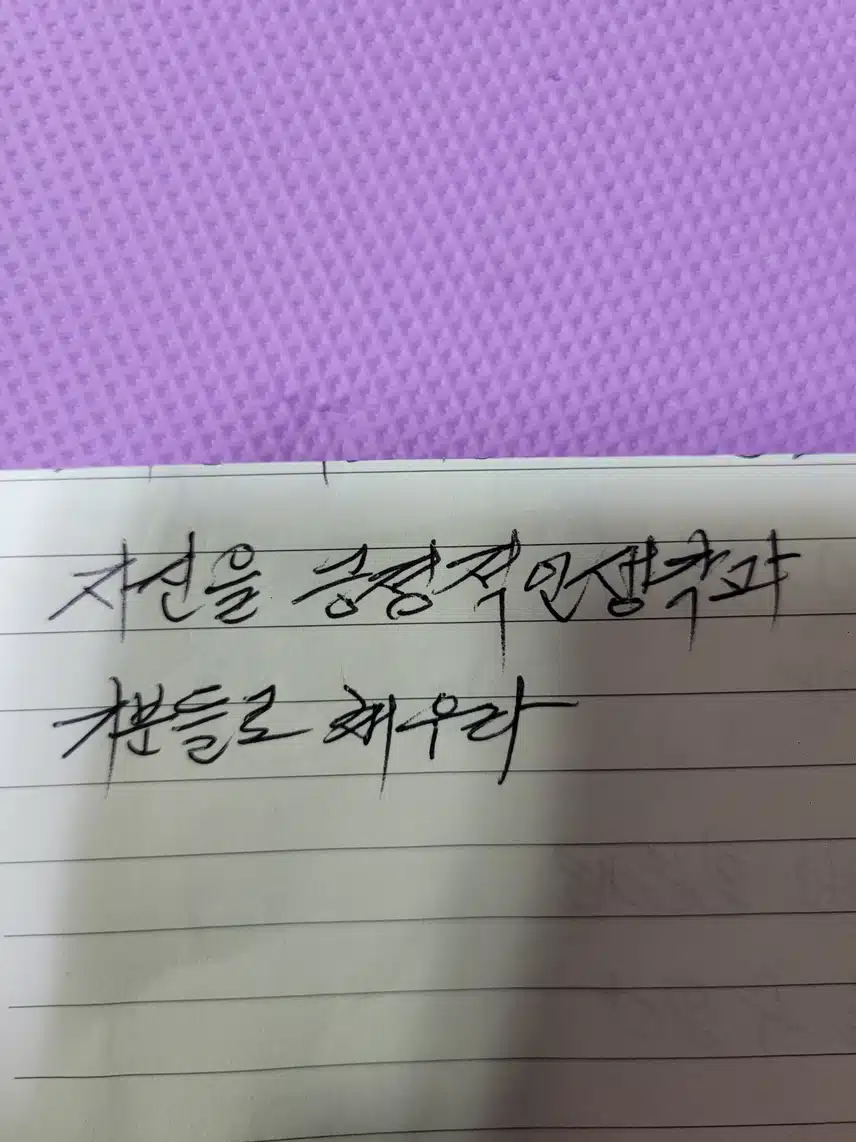 자신을 긍정적인 생각과
기분들로 채우라